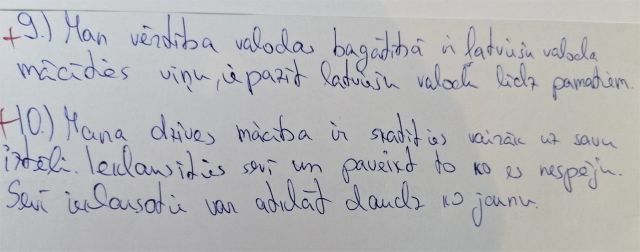 +9.) Man vērdība valodas bagātībā ir latviešu valoda
mācīdēs viņu, iepazīt latviešu valodu līdz pamatiem.
+10.) Mana dzīves mācība ir skatīties vairāk uz savu
iztēli. Ieklausīties sevī un paveikt to ko es nespēju.
Sevī ieklausotie var atklāt daudz ko jaunu.